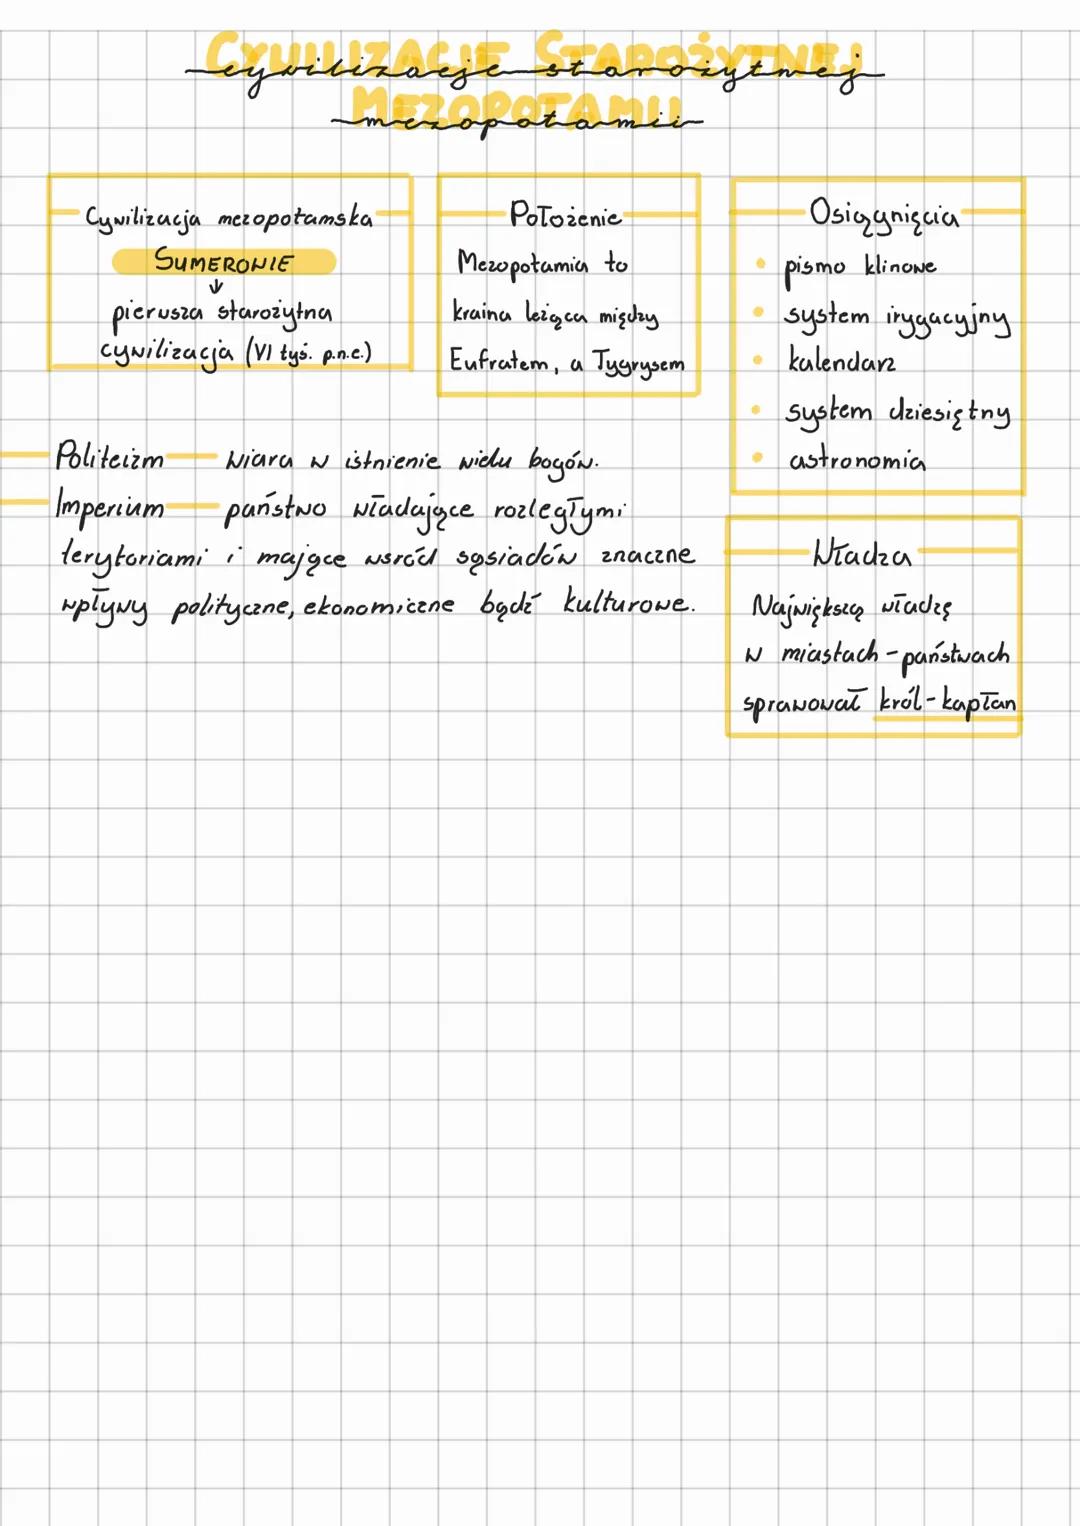 CYWILIZACJE STAROŻYTNEJ
cywilizacje starożytnej
MEZOPOTAMII
mezopotamii
Cywilizacja mezopotamska
SUMEROWIE
↓
pierwsza starożytna
cywilizacja (VI tyś. p.n.e.)
Położenie
Mezopotamia to
kraina leżąca między
Eufratem, a Tygrysem
Osiągnięcia
• pismo klinowe
• system irygacyjny
• kalendarz
• system dziesiętny
• astronomia
Politeizm — wiara w istnienie wielu bogów.
Imperium — państwo władające rozległymi
terytoriami i mające wsród sąsiadów znaczne
wpływy polityczne, ekonomiczne bądź kulturowe.
Władza
Największą władzę
w miastach-państwach
sprawował król-kapłan